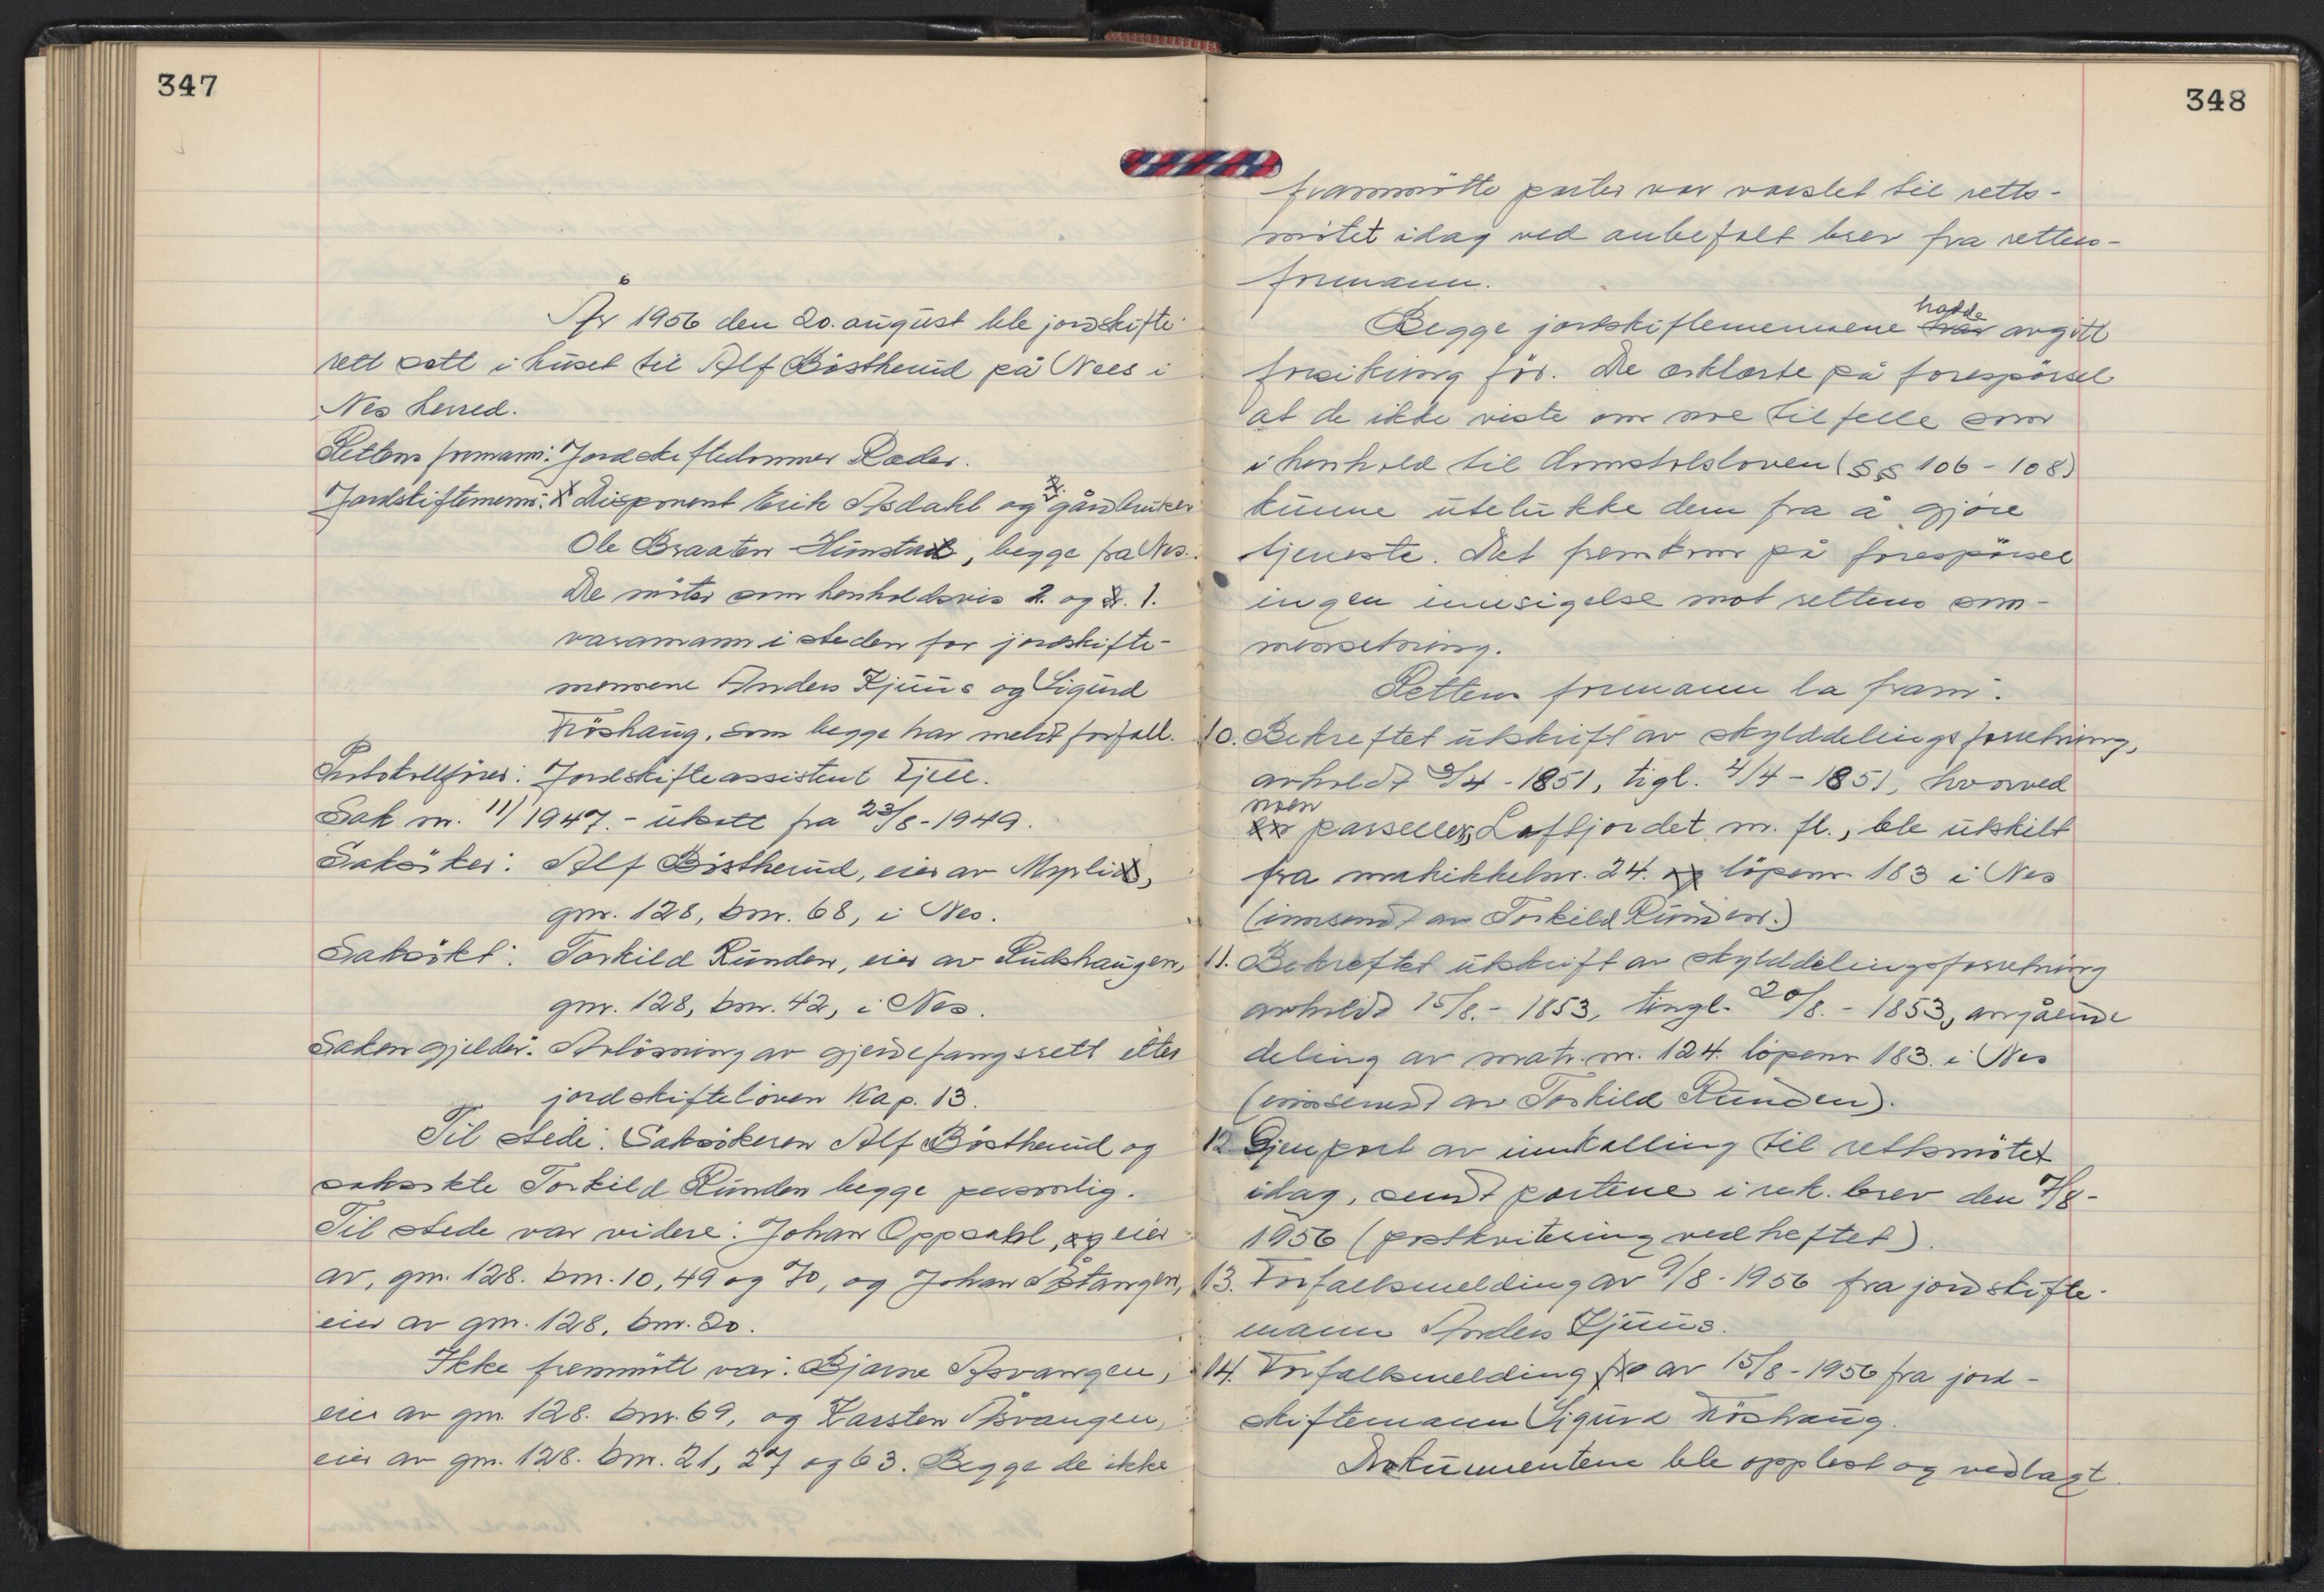 347
År 1956 den 20. august ble jordskifte-
rett satt i huset til Alf Bøstherud på Nees i
Nes herred.
Rettens formann: Jordskiftedommer Ræder.
Jordskiftemenn: Disponent Erik Asdahl og gårdbruker
Ole Braaten Hunstad, begge fra Nes.
De møter som henholdsvis 2. og 1.
varamann i steden for jordskifte-
mennene Anders Kjuus og Sigurd
Frøshaug, som begge har meldt forfall.
Protokollfører: Jordskifteassistent Fjell.
Sak nr. 11/1947. - utsatt fra 23/8-1949.
Saksøker: Alf Bøstherud, eier av Myrli,
gnr. 128, bnr. 68, i Nes.
Saksøkt: Torkild Runden, eier av Rudshaugen,
gnr. 128, bnr. 42, i Nes.
Saken gjelder: Avløsning av gjerdefangsrett etter
jordskifteloven Kap. 13.
Til stede: Saksøkeren Alf Bøstherud og
saksøkte Torkild Runden begge personlig.
Til stede var videre: Johan Oppsahl, eier
av, gnr. 128. bnr. 10, 49 og 70, og Johan Stangen,
eier av gnr. 128, bnr. 20.
Ikke fremmøtt var: Bjarne Åsvangen,
eier av gnr. 128. bnr. 69, og Karsten Åsvangen,
eier av gnr. 128. bnr. 21, 27 og 63. Begge de ikke
348
frammøtte parter var varslet til retts-
møtet idag ved anbefalt brev fra rettens-
formann.
Begge jordskiftemennene hadde avgitt
forsikring før. De erklærte på forespørsel
at de ikke viste om noe tilfelle som
i henhold til domstolsloven (§§ 106-108)
kunne utelukke dem fra å gjøre
tjeneste. Det fremkom på forespørsel
ingen innsigelse mot rettens sam-
mensetning.
Rettens formann la fram:
10. Bekreftet utskrift av skylddelingsforretning,
avholdt 3/4-1851, tigl. 4/4-1851, hvorved
noen parseller, Løftjordet m. fl., ble utskilt
fra matrikkelnr. 24. løpenr 183 i Nes
(innsendt av Torkild Runden.)
11. Bekreftet utskrift av skylddelingsforretning
avholdt 15/8.-1853, tingl. 20/8.-1853, angående
deling av matr. nr. 124. løpenr 183. i Nes
(innsendt av Torkild Runden).
12. Gjenpart av innkalling til rettsmøtet
idag, sendt partene i rek. brev den 7/8-
1956 (postkvitering vedheftet).
13. Forfallsmelding av 9/8-1956 fra jordskifte-
mann Anders Kjuus.
14. Forfallsmelding av 15/8-1956 fra jord-
skiftemann Sigurd Frøshaug.
Dokumentene ble opplest og vedlagt.